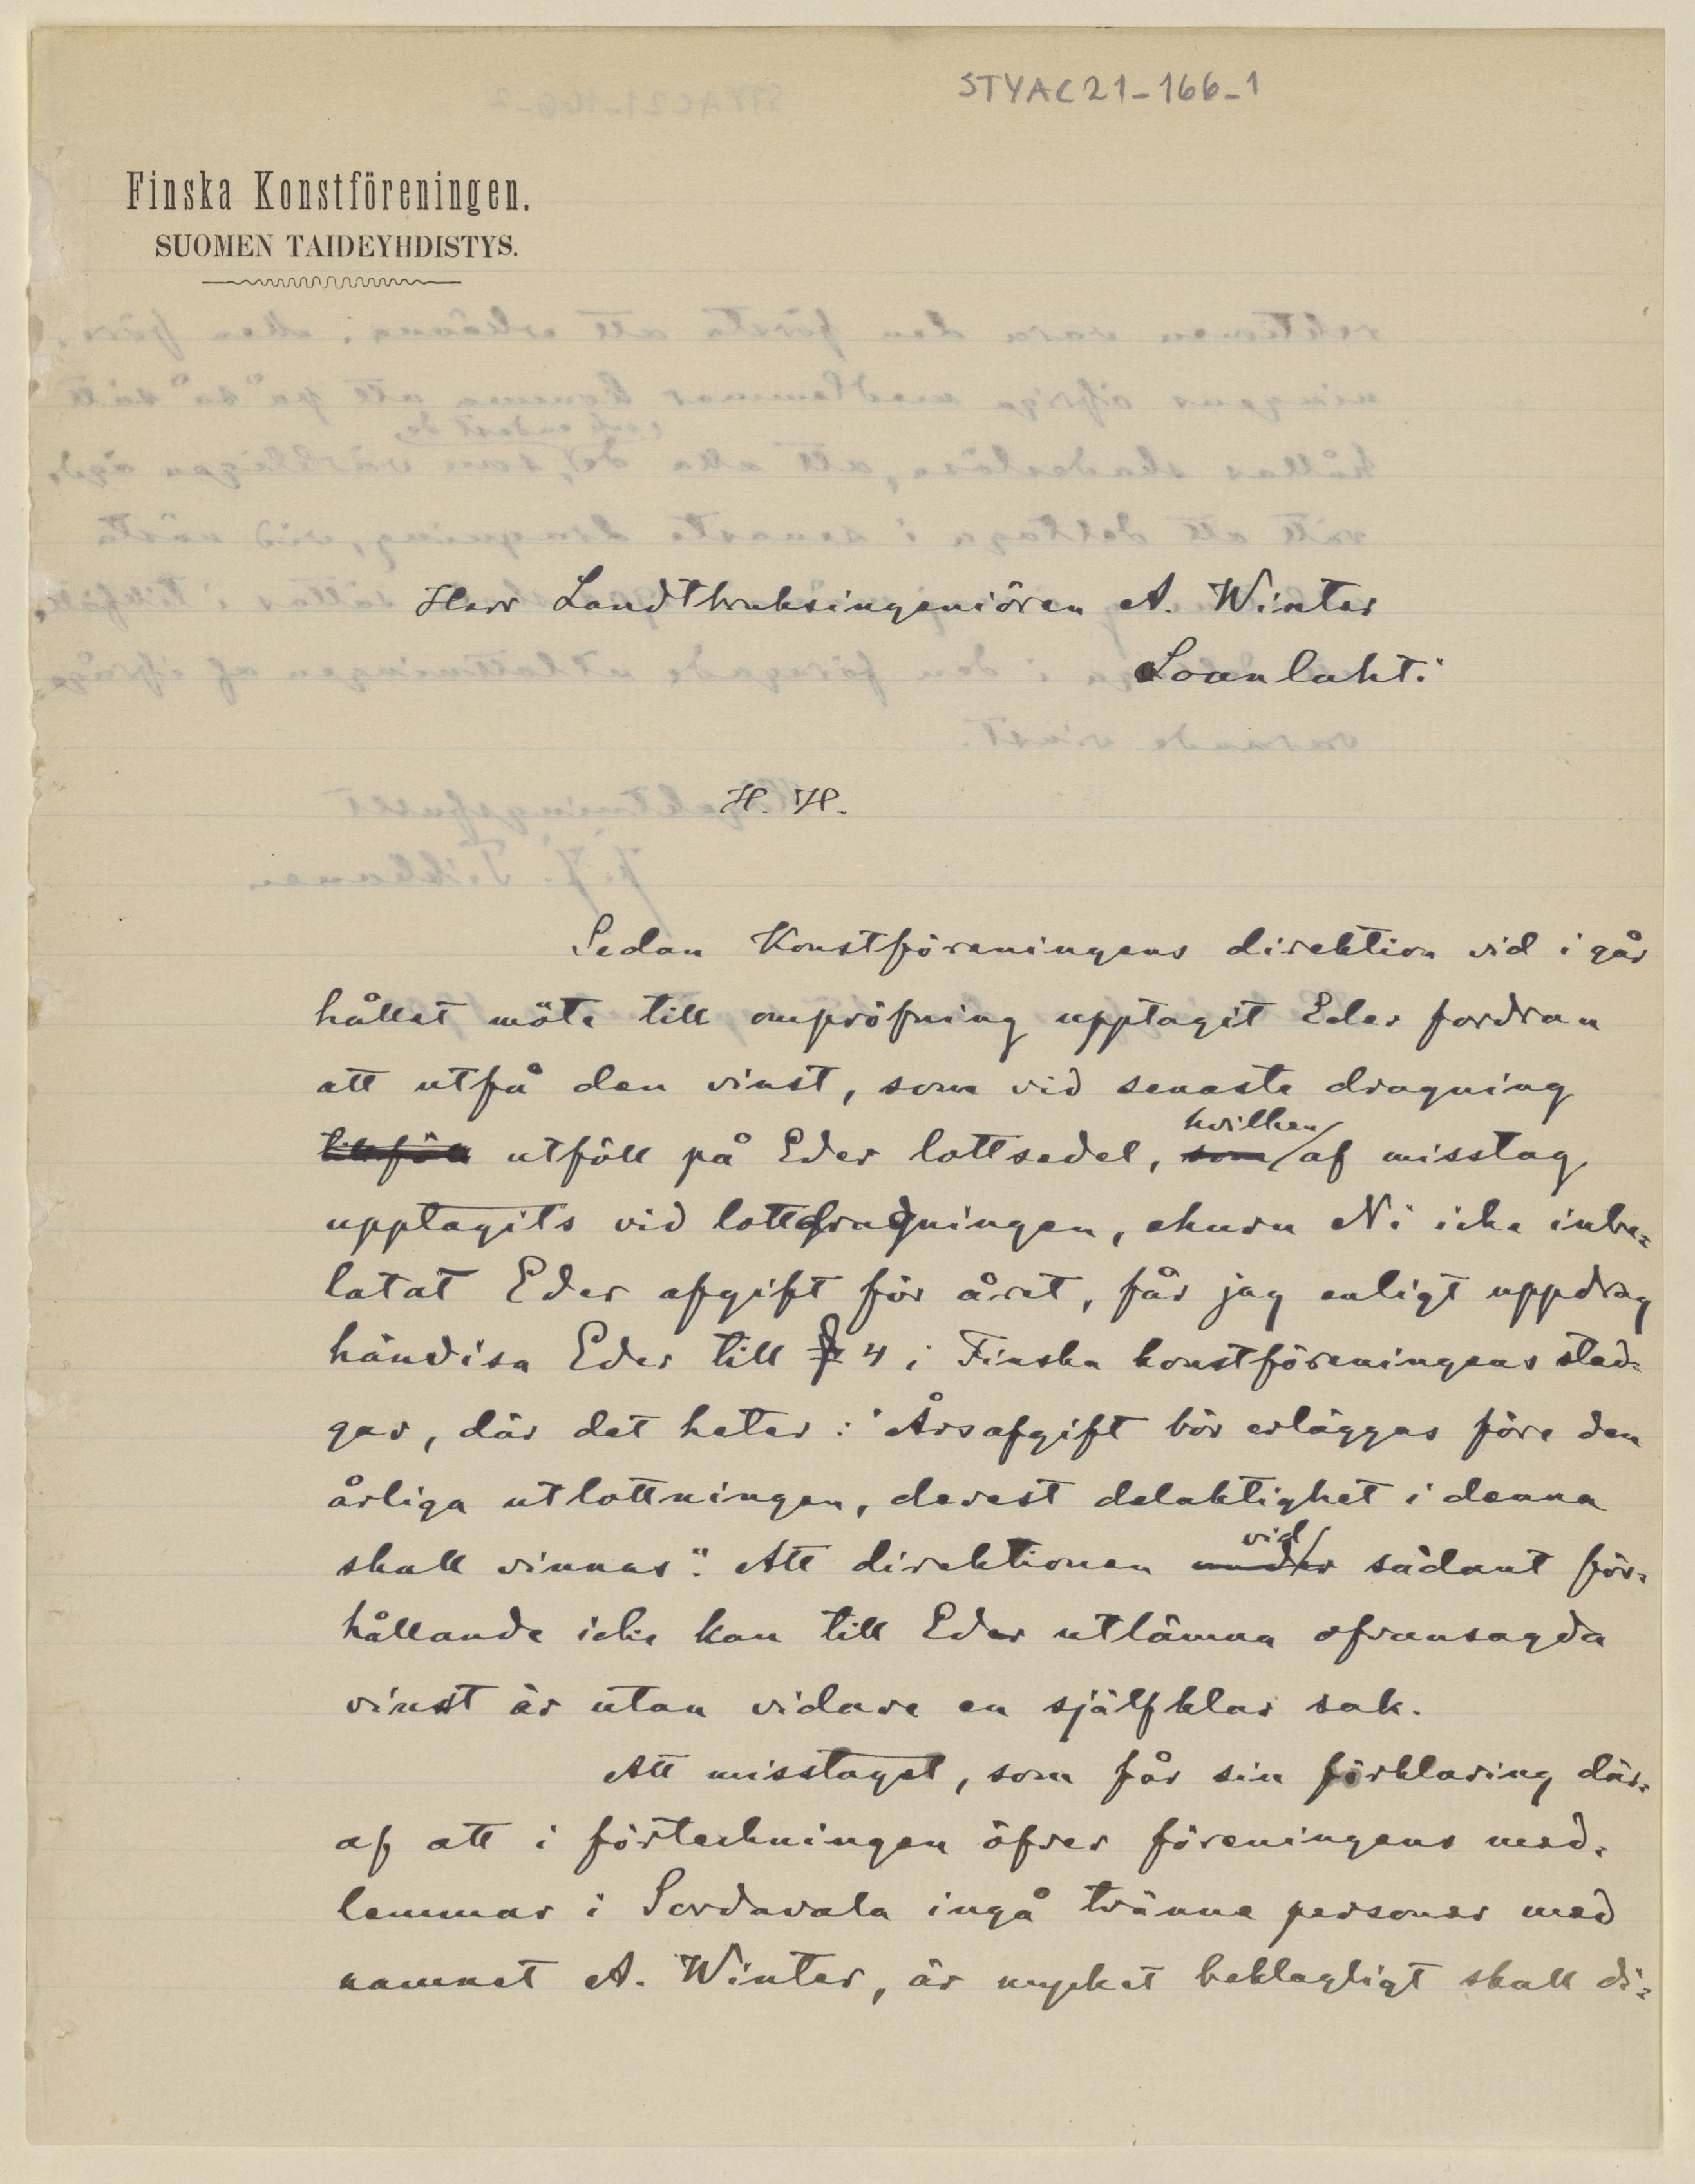 STYAC21-166-1
Finska Konstföreningen.
SUOMEN TAIDEYHDISTYS.
Herr Landtbruksingeniören A. Winter
Loanlahti
H. H.
Sedan Konstföreningens direktion vid i går
hållet möte till ompröfning upptagit Eder fordran
att utfå den vinst, som vid senaste dragning
tillföll utföll på Eder lottsedel, som hvilken af misstag
upptagits vid lottdragningen, ehuru Ni icke inbe-
latat Eder afgift för året, får jag enligt uppdrag
hänvisa Eder till § 4 i Finska konstföreningens stad-
gar, där det heter: "Årsafgift bör erläggas före den
årliga utlottningen, derest delaktighet i denna
skall vinnas." Att direktionen under vid sådant för-
hållande icke kan till Eder utlämna ofvansagda
vinst är utan vidare en själfklar sak.
Att misstaget, som får sin förklaring där-
af att i förteckningen öfver föreningens med-
lemmar i Sordavala ingå tvänne personer med
namnet A. Winter, är mycket beklagligt skall di-